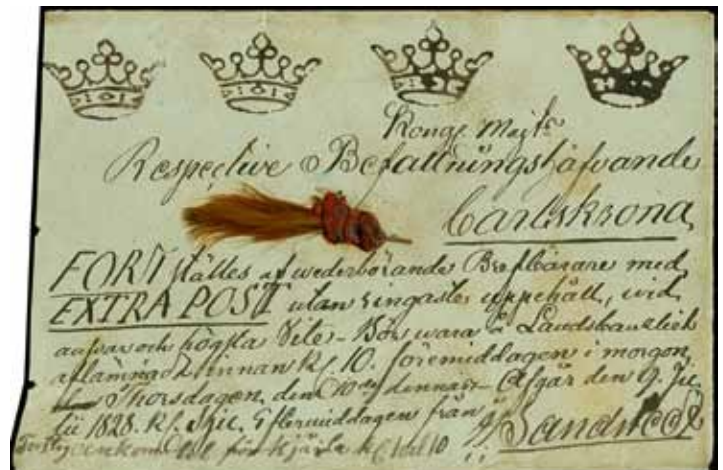 Kongl Majts
Respective Befallningshafvande
Carlskrona
FORT ställes af wederbörande Brefbärare med
EXTRA POST utan ringaste uppehåll, wid
answar och högsta Vite - Bör wara i Landskanzliet
aflämnadt innan Kl. 10. föremiddagen i morgon,
Thorsdagen, den 10 dennas - Afgår den 9. Ju-
lii 1828. Kl. Eftermiddagen från
Sandw
ankom till kl 10